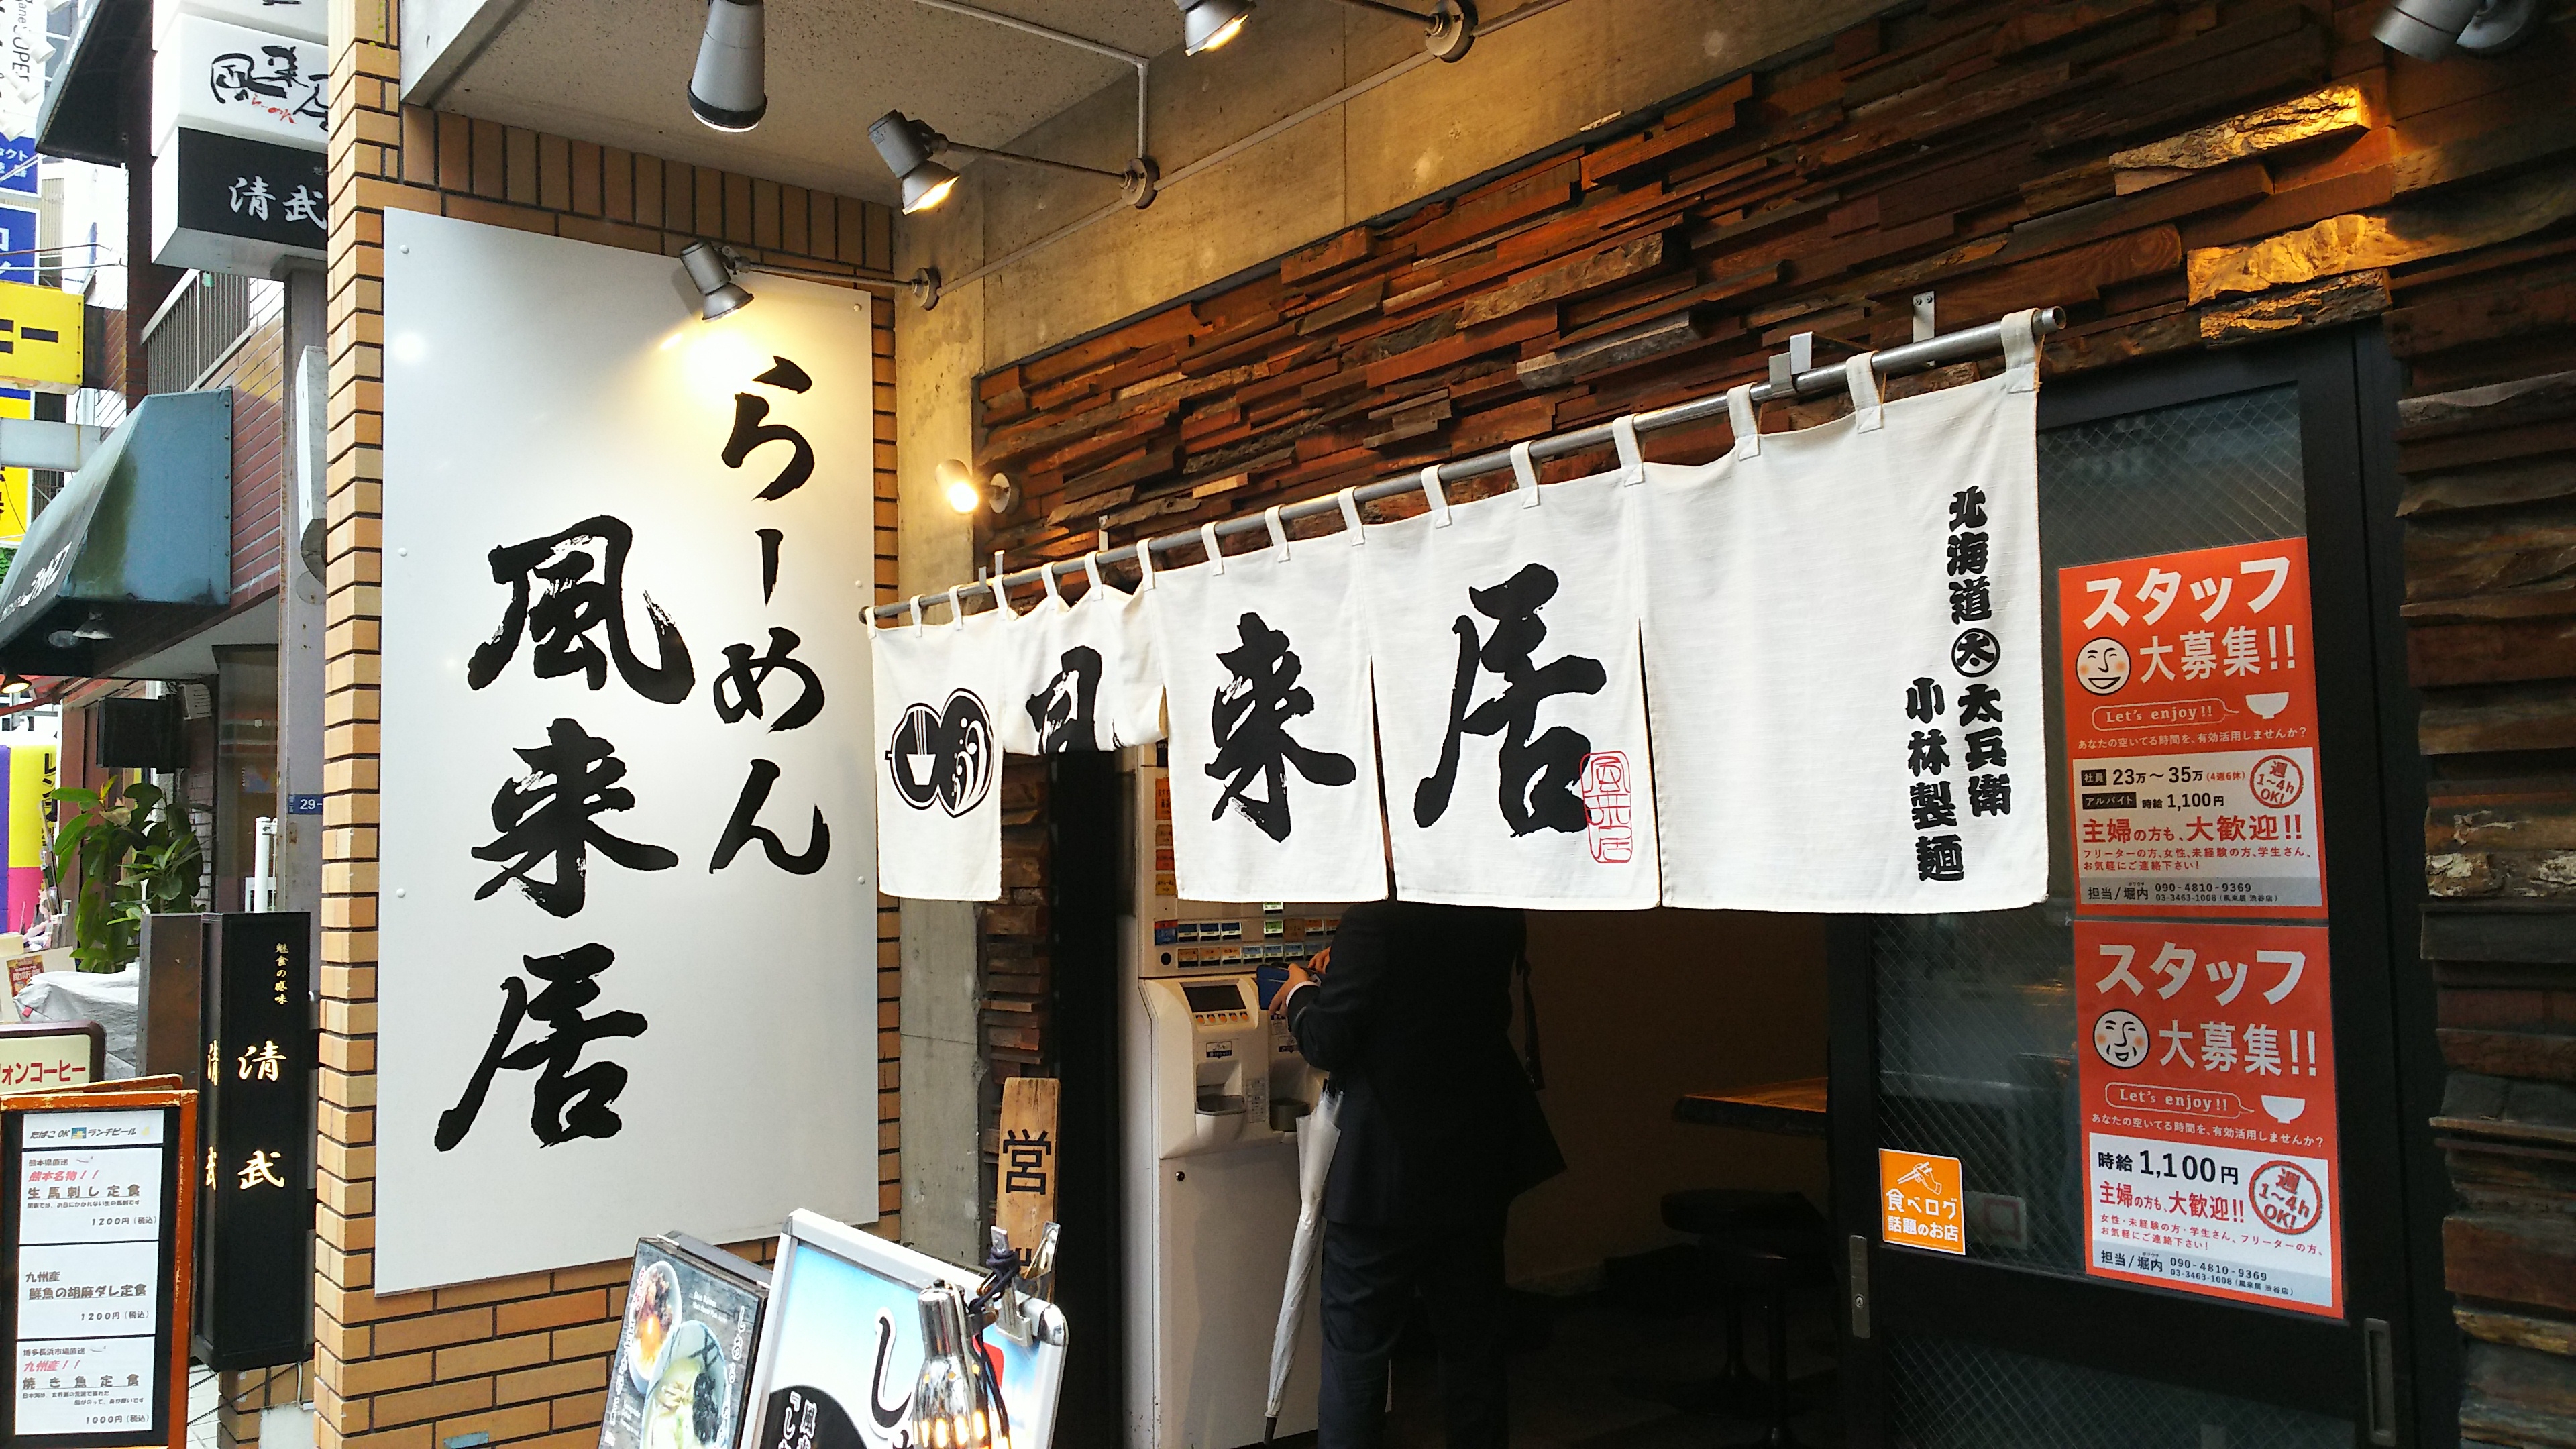 風来居
らーめん
清武
らーめん
風来居
風
来
居
風来居
北海道 太 太兵衛
小林製麺
29-
魁食の趣味
清武
清武
ォンコーヒー
たばこOK ランチビール
熊本県直送
熊本名物！！
生馬刺し定食
1200円（税込）
九州産
鮮魚の胡麻ダレ定食
1200円（税込）
博多長浜市場直送
九州産！！
焼き魚定食
1000円（税込）
営
スタッフ
大募集!!
Let's enjoy!!
あなたの空いてる時間を、有効活用しませんか？
社員 23万～35万（4週6休）
アルバイト 時給1,100円
週1~4h OK!
主婦の方も、大歓迎!!
フリーターの方、女性、未経験の方、学生さん、
お気軽にご連絡下さい！
担当/堀内 090-4810-9369
03-3463-1008（風来居 渋谷店）
スタッフ
大募集!!
Let's enjoy!!
あなたの空いてる時間を、有効活用しませんか？
時給1,100円
週1~4h OK!
主婦の方も、大歓迎!!
女性・未経験の方・学生さん、フリーターの方、
お気軽にご連絡下さい！
担当/堀内 090-4810-9369
03-3463-1008（風来居 渋谷店）
食べログ
話題のお店